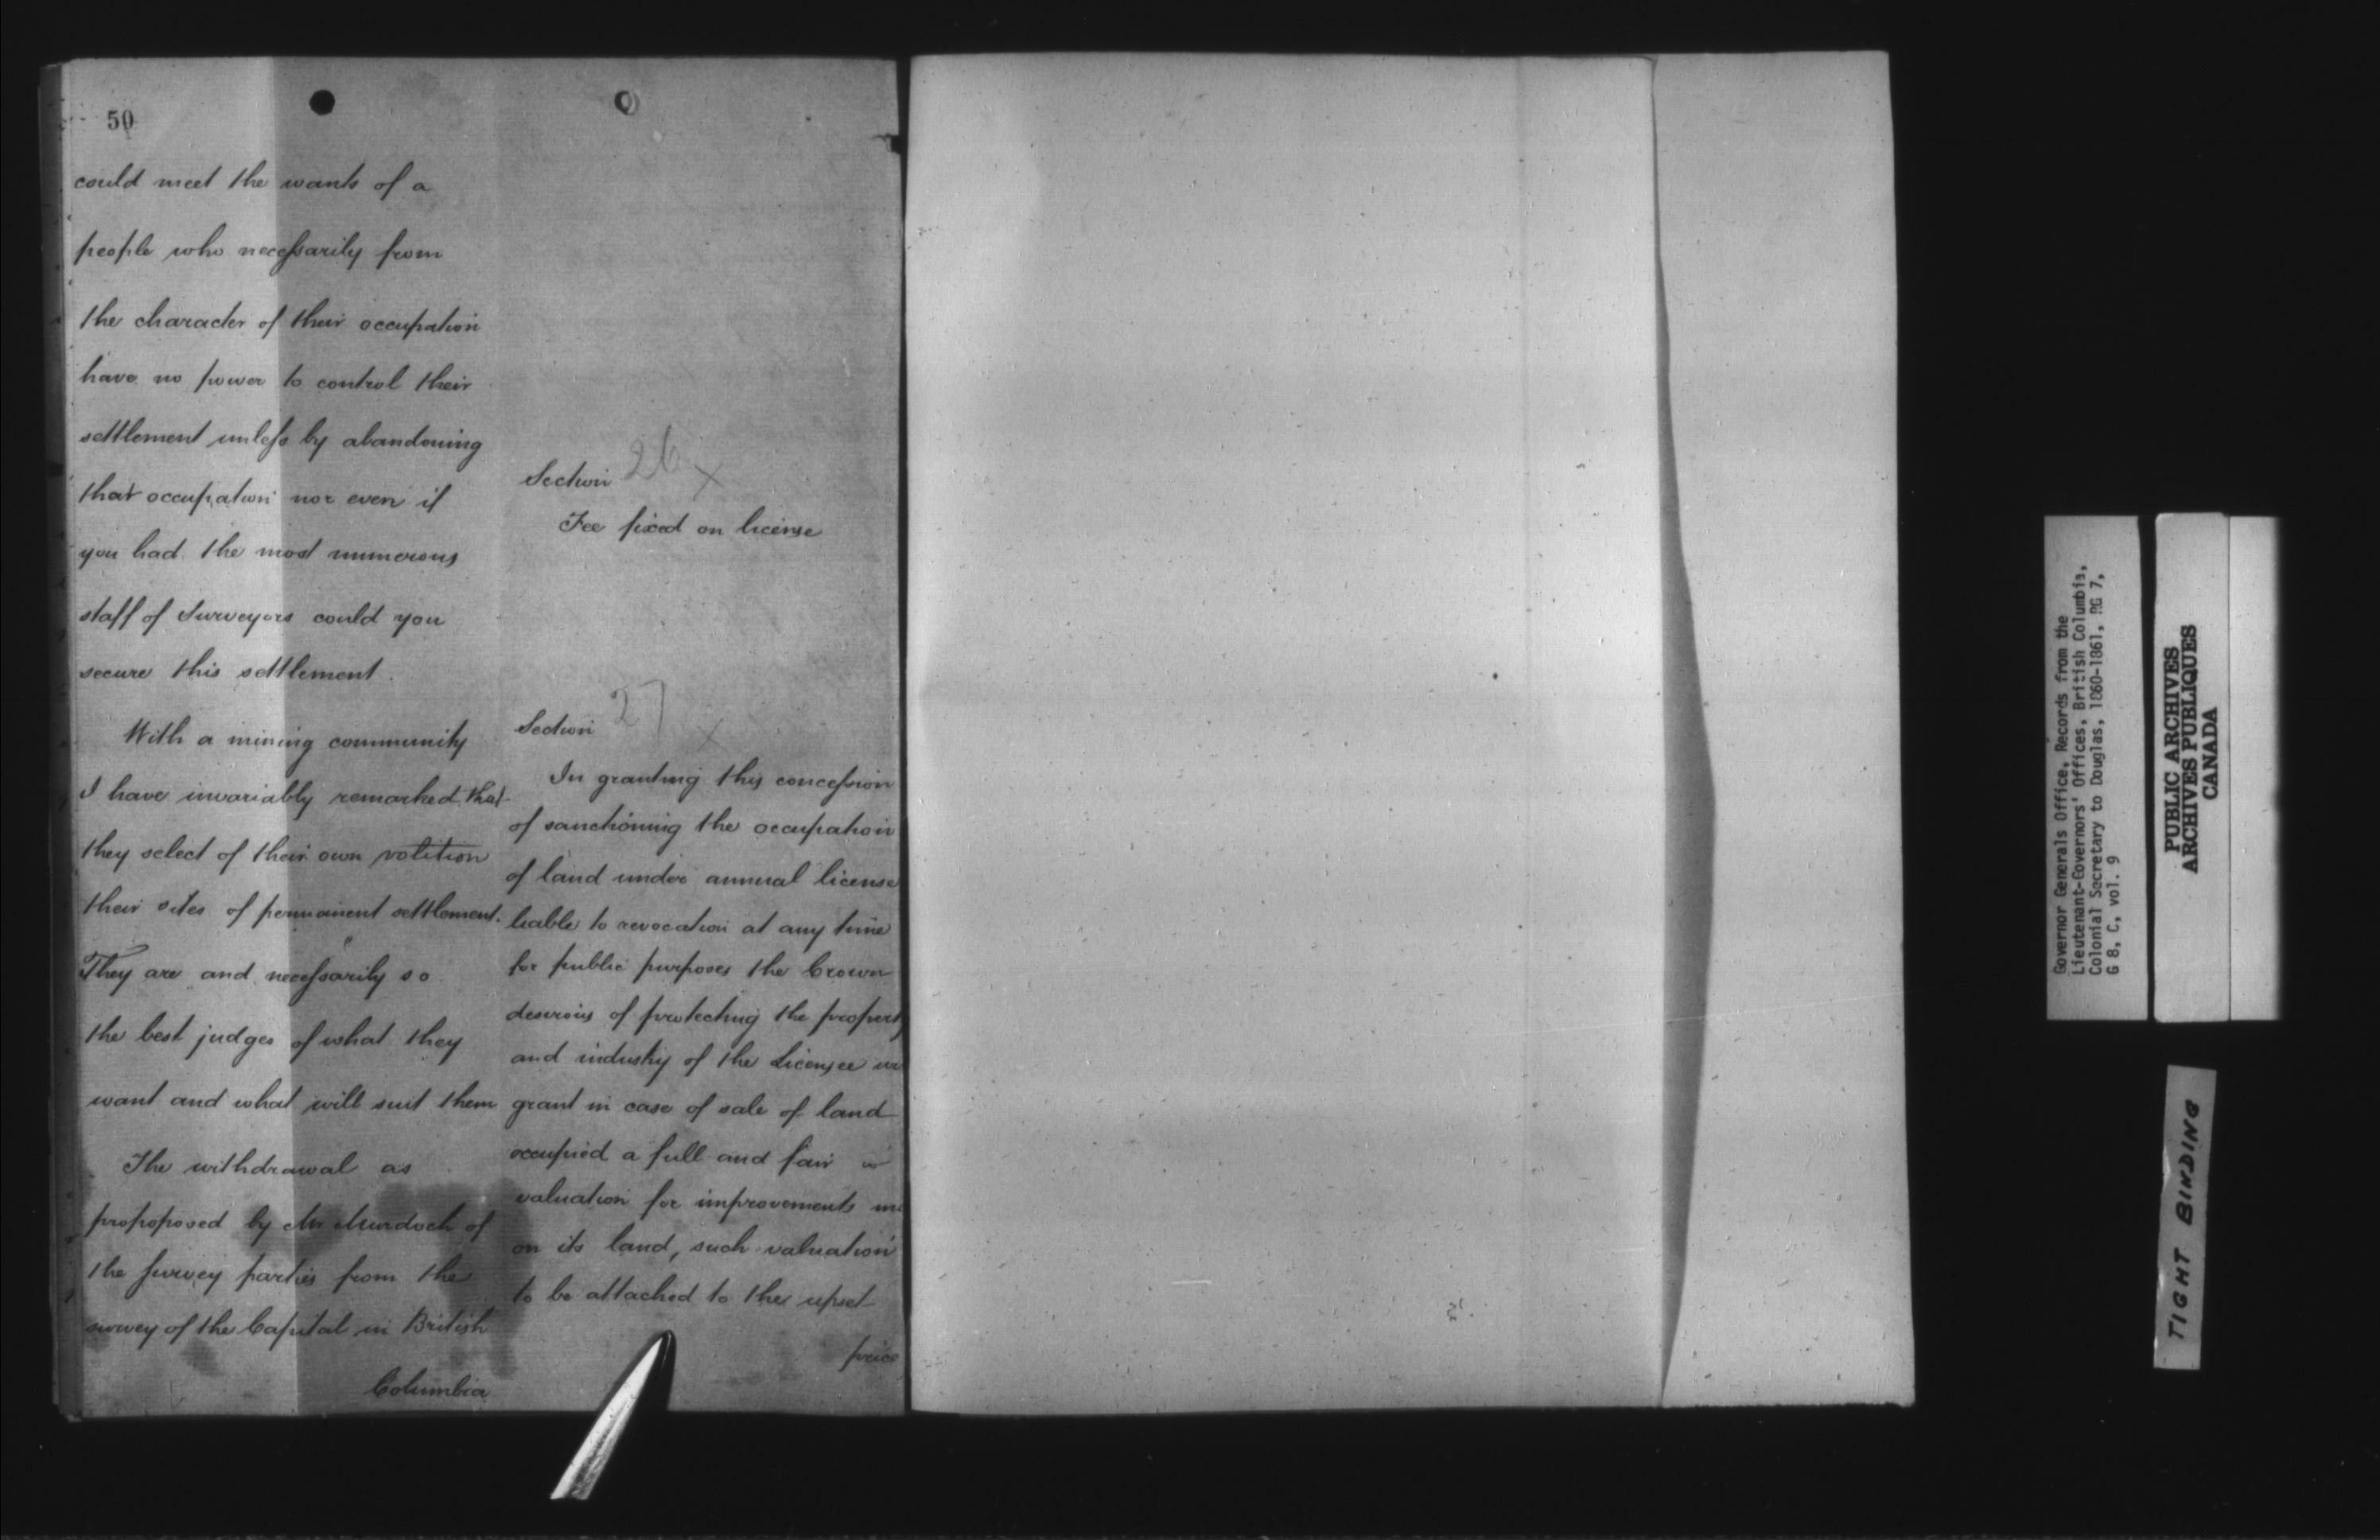 50
could meet the wants of a
people who necessarily from
the character of their occupation
have no power to control their
settlement unless by abandoning
that occupation nor even if
you had the most numerous
staff of Surveyors could you
secure this settlement.
With a mining community
I have invariably remarked that
they select of their own volition
their sites of permanent settlement.
They are and necessarily so
the best judges of what they
want and what will suit them
The withdrawal as
propoposed by Mr Murdoch of
the survey parties from the
survey of the Capital in British
Columbia
Section 26 x
Fee fixed on license
Section 27 x
In granting this concession
of sanctioning the occupation
of land under annual license
liable to revocation at any time
for public purposes the Crown
desirous of protecting the property
and industry of the Licensee
grant in case of sale of land
occupied a full and fair
valuation for improvements
on its land, such valuation
to be attached to the upset
price
Governor Generals Office, Records from the
Lieutenant-Governors' Offices, British Columbia,
Colonial Secretary to Douglas, 1860-1861, RG 7,
G 8, C, vol. 9
PUBLIC ARCHIVES
ARCHIVES PUBLIQUES
CANADA
TIGHT BINDING